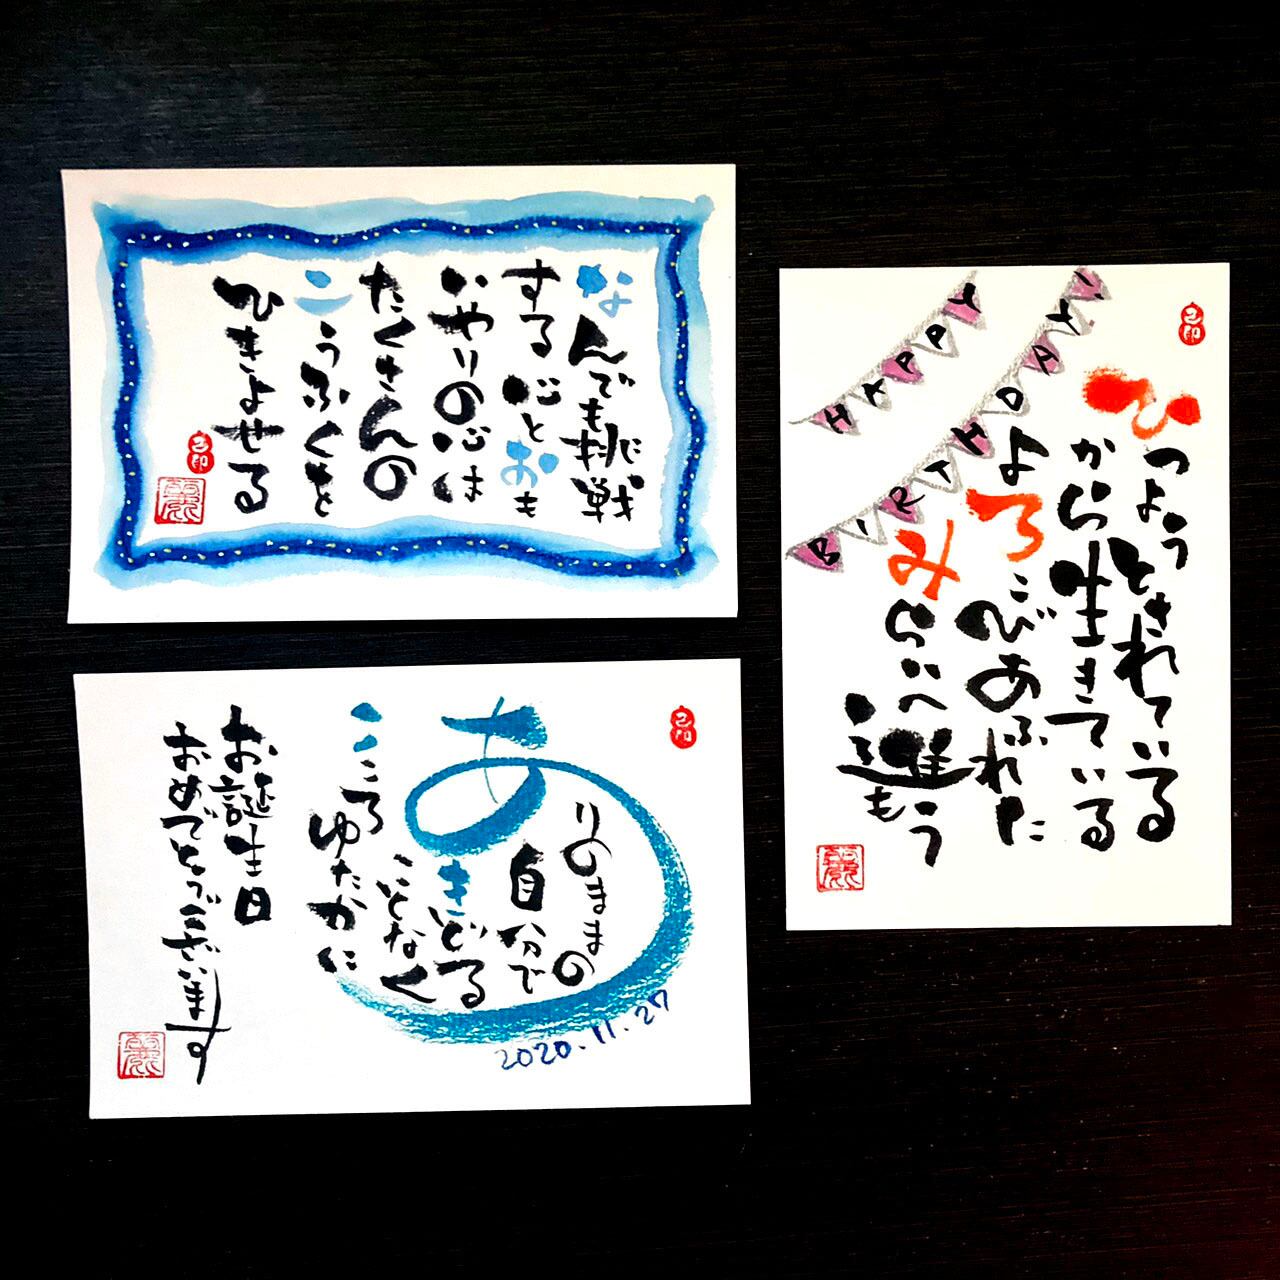 なんでも挑戦
する心とおも
いやりの心は
たくさんの
こうふくを
ひきよせる
己印
HAPPY
BIRTHDAY!
己印
ひつようとされている
から生きている
よろこびあふれた
みらいへ進もう
ありのままの
自分で
きどる
ことなく
こころ
ゆたかに
お誕生日
おめでとうございます
2020.11.27
己印